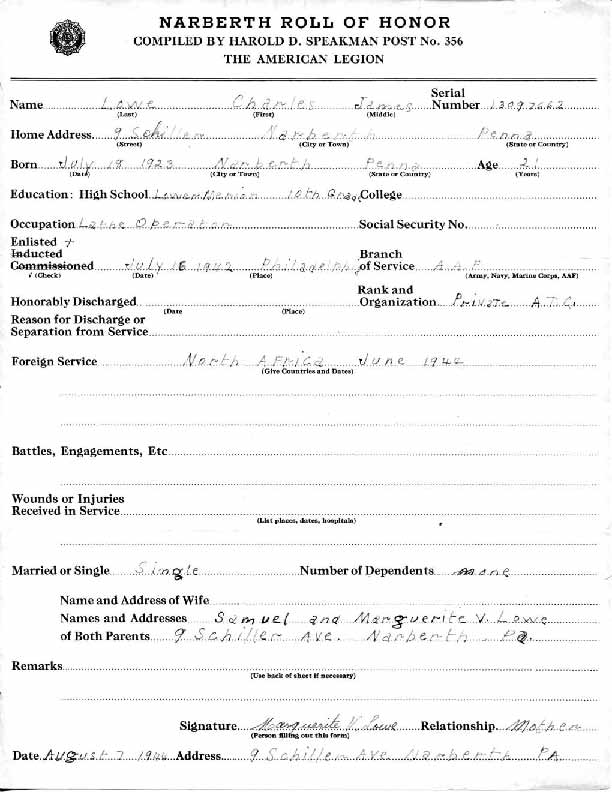 NARBERTH ROLL OF HONOR
COMPILED BY HAROLD D. SPEAKMAN POST No. 356
THE AMERICAN LEGION
Name Lowe Charles James Serial Number 13097662
(Last) (First) (Middle)
Home Address 9 Schiller Narberth Penna
(Street) (City or Town) (State or Country)
Born July 19 1923 Narberth Penna Age 21
(Date) (City or Town) (State or Country) (Years)
Education: High School Lower Merion 10th Grade College
Occupation Lathe Operator Social Security No.
Enlisted ✓
Inducted Branch
Commissioned July 16 1942 Philadelph of Service A.A.F.
✓ (Check) (Date) (Place) (Army, Navy, Marine Corps, AAF)
Rank and
Honorably Discharged Organization Private A.T.C.
(Date (Place)
Reason for Discharge or
Separation from Service
Foreign Service North AFRICA June 1944
(Give Countries and Dates)
Battles, Engagements, Etc
Wounds or Injuries
Received in Service
(List places, dates, hospitals)
Married or Single Single Number of Dependents none
Name and Address of Wife
Names and Addresses Samuel and Marguerite V. Lowe
of Both Parents 9 Schiller Ave. Narberth Pa.
Remarks
(Use back of sheet if necessary)
Signature Marguerite V. Lowe Relationship Mother
(Person filling out this form)
Date August 7 1944 Address 9 Schiller Ave Narberth PA